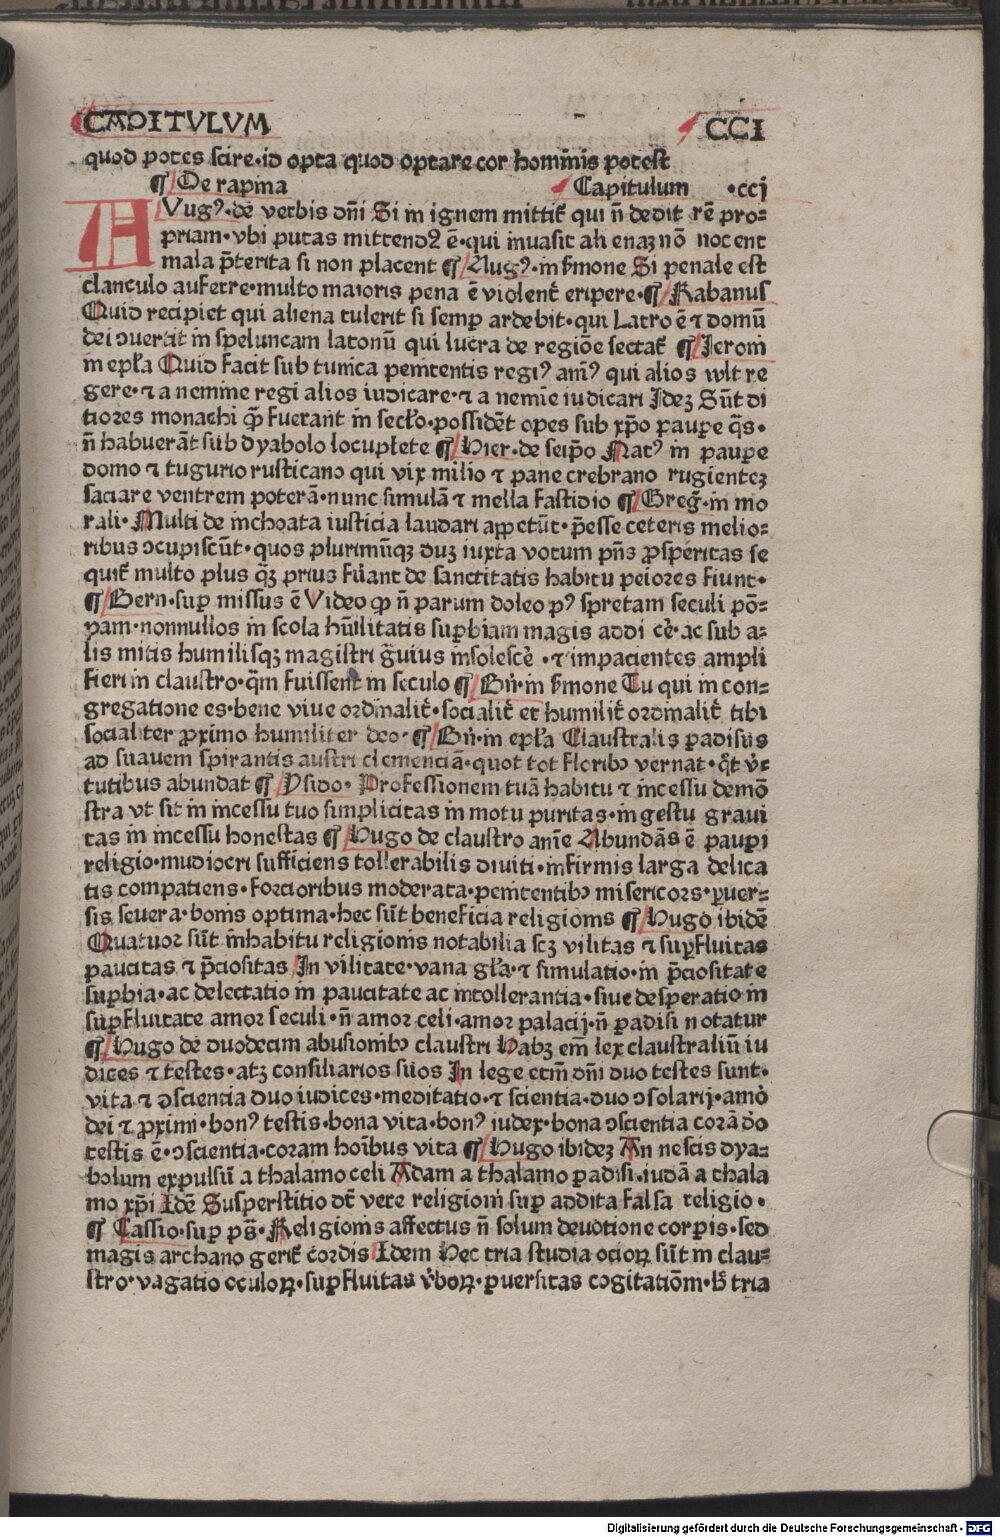 CAPITULUM CCI
quod potes scire·id opta quod optare cor hominis potest
¶ De rapina Capitulum ·ccj
AVugꝰ·de verbis dn̄i Si in ignem mittit̄ qui n̄ dedit rē pro⸗
priam·vbi putas mittendꝰ ē·qui inuasit alienaꝫ nō nocent
mala p̄terita si non placent ¶ Augꝰ·in s̄mone Si penale est
clanculo auferre·multo maioris pena ē violent̄ eripere·¶ Rabanus
Quid recipiet qui aliena tulerit si semꝑ ardebit·qui Latro ē ⁊ domū
dei ↄuertit in speluncam latonū qui lucra de regiōe sectat̄ ¶ Jerom̄
in epl̄a Quid facit sub tunica penitentis regiꝰ animꝰ qui alios vult re
gere·⁊ a nemine regi alios iudicare·⁊ a nemīe iudicari Jdeꝫ Sūt di
tiores monachi ꝙ fuerant in secl̄o·possidēt opes sub xp̄o pauꝑe q̄s·
n̄ habuerāt sub dyabolo locuplete ¶ Hier·de seip̄o Natꝰ in pauꝑe
domo ⁊ tugurio rusticano qui vix milio ⁊ pane crebrano rugienteꝫ
saciare ventrem poterā·nunc simulā ⁊ mella fastidio ¶ Greg̃·in mo
rali·Multi de inchoata iusticia laudari apꝑetūt·p̄esse ceteris melio⸗
ribus ↄcupiscūt·quos plurimūqꝫ duꝫ iuxta votum pn̄s ꝓsperitas se
quit̄ multo plus qͣꝫ prius fūant de sanctitatis habitu peiores fiunt·
¶ Bern·suꝑ missus ē Video ꝙ n̄ parum doleo pꝰ spretam seculi pō⸗
pam·nonnullos in scola hūilitatis suꝑbiam magis addiscē·ac sub a⸗
lis mitis humilisqꝫ magistri g̃uius insolescē·⁊ impacientes ampli
fieri in claustro·qͣm fuissent in seculo ¶ Bn̄·in s̄mone Tu qui in con⸗
gregatione es·bene viue ordinalit̄·socialit̄ et humilit̄ ordinalit̄ tibi
socialiter ꝓximo humiliter deo·¶ Bn̄·in epl̄a Claustralis ꝑadisus
ad suauem spirantis austri clemenciā·quot tot floribꝰ vernat·qͣt v̄⸗
tutibus abundat ¶ Ysido· Professionem tuā habitu ⁊ incessu demō
stra vt sit in incessu tuo simplicitas in motu puritas·in gestu graui
tas in incessu honestas ¶ Hugo de claustro anīe Abundās ē pauꝑi
religio·mudiocri sufficiens tollerabilis diuiti·infirmis larga delica
tis compatiens·forcioribus moderata·penitentibꝰ misericors·ꝑuer⸗
sis seuera·bonis optima·hec sūt beneficia religionis ¶ Hugo ibidē
Quatuor sūt inhabitu religionis notabilia scꝫ vilitas ⁊ suꝑfluitas
paucitas ⁊ p̄ciositas In vilitate·vana gl̄a·⁊ simulatio·in p̄ciositate
suꝑbia·ac delectatio in paucitate ac intollerantia·siue desperatio in
suꝑfluitate amor seculi·n̄ amor celi·amor palacij·n̄ ꝑadisi notatur
¶ Hugo de duodecim abusionibꝰ claustri Habꝫ em̄ lex claustraliū iu
dices ⁊ testes·atqꝫ consiliarios suos In lege etm̄ dn̄i duo testes sunt·
vita ⁊ ↄsciencia duo iudices·meditatio·⁊ scientia·duo ↄsolarij·amō
dei ⁊ ꝓximi·bonꝰ testis·bona vita·bonꝰ iudex·bona ↄscientia corā dō
testis ē·ↄscientia·coram hoībus vita ¶ Hugo ibideꝫ An nescis dya⸗
bolum expulsū a thalamo celi Adam a thalamo ꝑadisi·iudā a thala
mo xp̄i Idē Susperstitio dt̄ vere religioni suꝑ addita falsa religio·
¶ Cassio·suꝑ ps̄·Religionis affectus n̄ solum deuotione corꝑis·sed
magis archano gerit̄ cordis Idem Hec tria studia ocioꝝ sūt in clau⸗
stro·vagatio oculoꝝ·suꝑfluitas v̄boꝝ·ꝑuersitas cogitationum·Hͨ tria
Digitalisierung gefördert durch die Deutsche Forschungsgemeinschaft - DFG